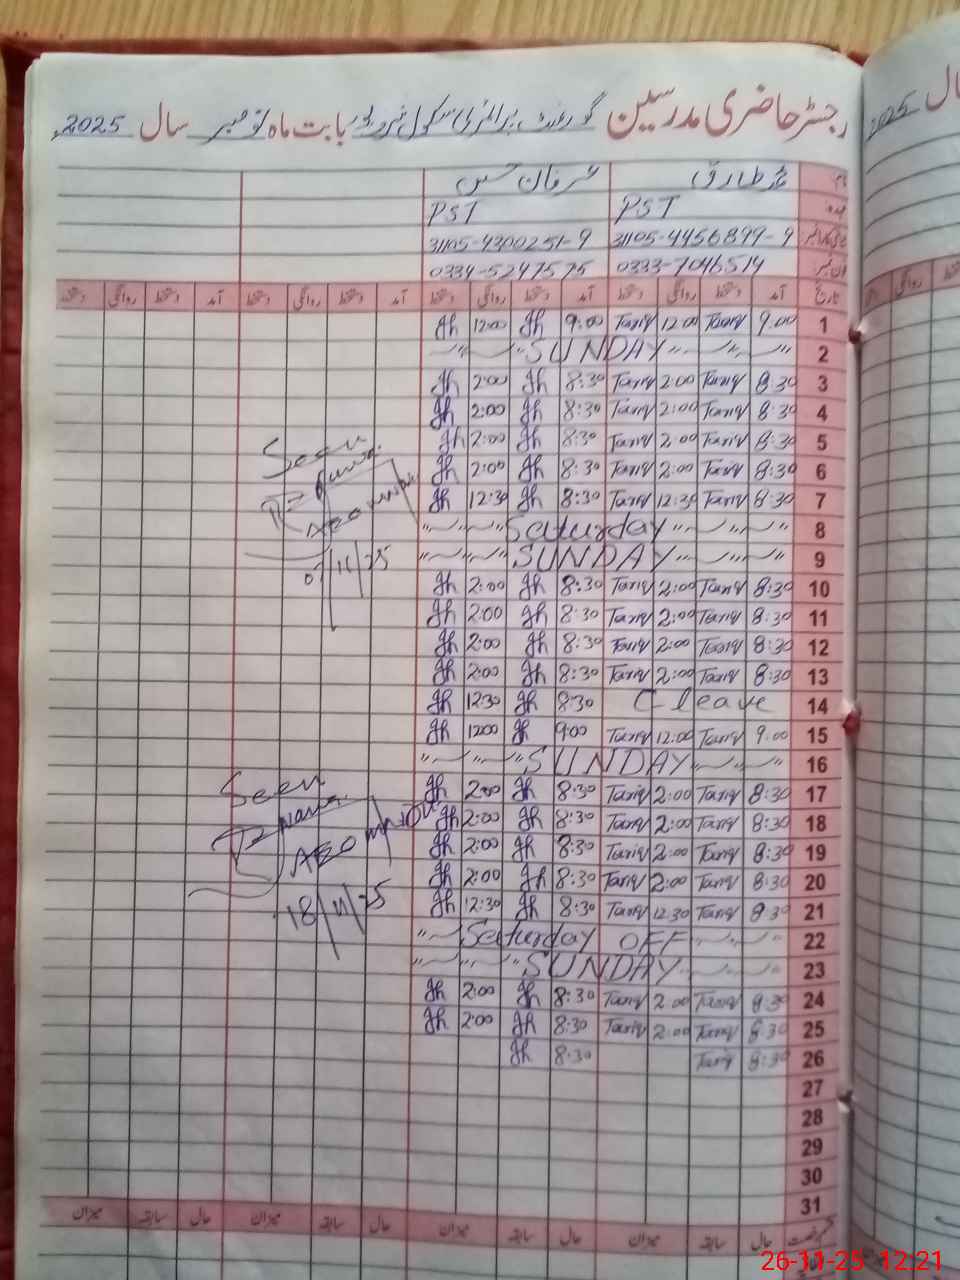 رجسٹر حاضری مدرسین گورنمنٹ پرائمری سکول بابت ماہ نومبر سال 2025ء
نام محمد طارق عرفان حسین
عہدہ PST PST
31105-4456899-9 31105-4300251-9
فون نمبر 0333-7046514 0334-5247575
تاریخ آمد دستخط روانگی دستخط آمد دستخط روانگی دستخط آمد دستخط روانگی دستخط آمد دستخط روانگی دستخط
1 9:00 Tariq 12:00 Tariq 9:00 Jh 12:00 Jh
2 SUNDAY
3 8:30 Tariq 2:00 Tariq 8:30 Jh 2:00 Jh
4 8:30 Tariq 2:00 Tariq 8:30 Jh 2:00 Jh
5 8:30 Tariq 2:00 Tariq 8:30 Jh 2:00 Jh
6 8:30 Tariq 2:00 Tariq 8:30 Jh 2:00 Jh
7 8:30 Tariq 12:30 Tariq 8:30 Jh 12:30 Jh
8 Saturday
9 SUNDAY
10 8:30 Tariq 2:00 Tariq 8:30 Jh 2:00 Jh
11 8:30 Tariq 2:00 Tariq 8:30 Jh 2:00 Jh
12 8:30 Tariq 2:00 Tariq 8:30 Jh 2:00 Jh
13 8:30 Tariq 2:00 Tariq 8:30 Jh 2:00 Jh
14 C leave 8:30 Jh 12:30 Jh
15 9:00 Tariq 12:00 Tariq 9:00 Jh 12:00 Jh
16 SUNDAY
17 8:30 Tariq 2:00 Tariq 8:30 Jh 2:00 Jh
18 8:30 Tariq 2:00 Tariq 8:30 Jh 2:00 Jh
19 8:30 Tariq 2:00 Tariq 8:30 Jh 2:00 Jh
20 8:30 Tariq 2:00 Tariq 8:30 Jh 2:00 Jh
21 8:30 Tariq 12:30 Tariq 8:30 Jh 12:30 Jh
22 Saturday OFF
23 SUNDAY
24 8:30 Tariq 2:00 Tariq 8:30 Jh 2:00 Jh
25 8:30 Tariq 2:00 Tariq 8:30 Jh 2:00 Jh
26 8:30 Tariq 8:30 Jh
27
28
29
30
31
حال سابقہ میزان حال سابقہ میزان حال سابقہ میزان حال سابقہ میزان
Seen
AEO
07/11/25
Seen
AEO
18/11/25
سال 2025
26-11-25 12:21